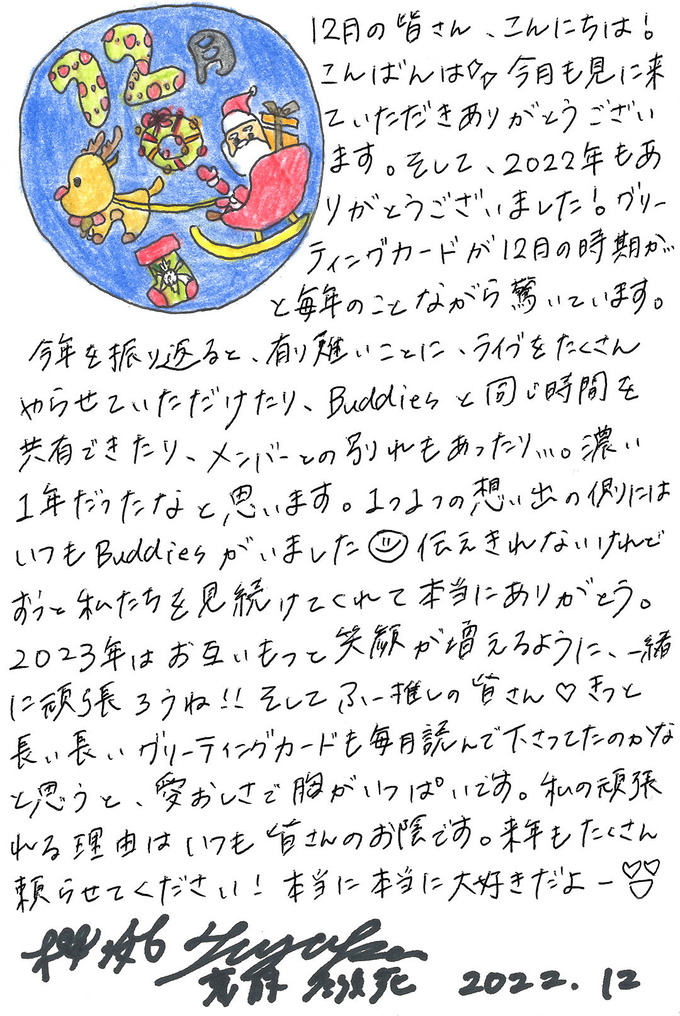 12月
12月の皆さん、こんにちは!
こんばんは☆☆今月も見に来
ていただきありがとうござい
ます。そして、2022年もあ
りがとうございました!グリー
ティングカードが12月の時期だ
と毎年のことながら驚いています。
今年を振り返ると、有り難いことに、ライブをたくさん
やらせていただけたり、Buddiesと同じ時間を
共有できたり、メンバーとの別れもあったり…。濃い
1年だったなと思います。1つ1つの想い出の側には
いつもBuddiesがいました☺伝えきれないけれど
ずっと私たちを見続けてくれて本当にありがとう。
2023年はお互いもっと笑顔が増えるように、一緒
に頑張ろうね!!そしてふー推しの皆さん♡きっと
長い長いグリーティングカードも毎月読んで下さってたのかな
と思うと、愛おしさで胸がいっぱいです。私の頑張
れる理由はいつも皆さんのお陰です。来年もたくさん
頼らせてください!本当に本当に大好きだよー
2022.12